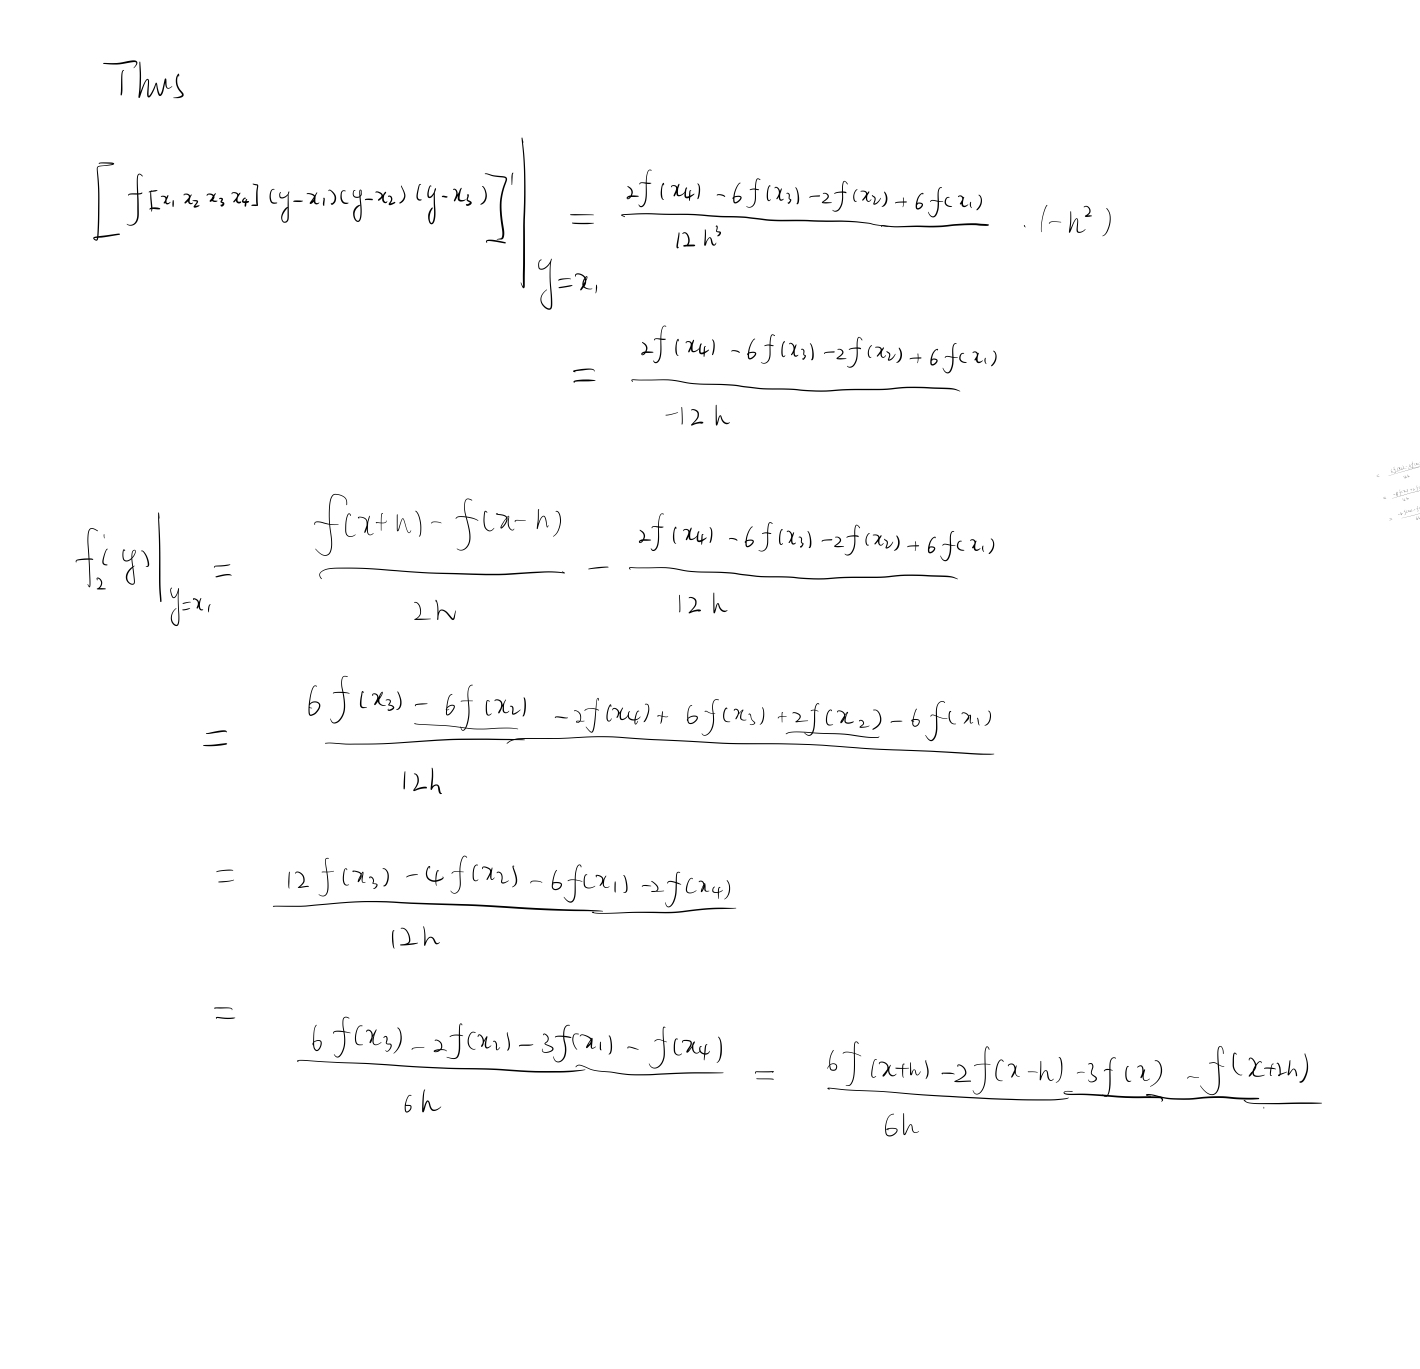 Thus
[f[x₁ x₂ x₃ x₄](y-x₁)(y-x₂)(y-x₃)]'|y=x₁ = (2f(x₄) - 6f(x₃) - 2f(x₂) + 6f(x₁))/(12h³) · (-h²)
= (2f(x₄) - 6f(x₃) - 2f(x₂) + 6f(x₁))/(-12h)
f₂'(y)|y=x₁ = (f(x+h) - f(x-h))/(2h) - (2f(x₄) - 6f(x₃) - 2f(x₂) + 6f(x₁))/(12h)
= (6f(x₃) - 6f(x₂) - 2f(x₄) + 6f(x₃) + 2f(x₂) - 6f(x₁))/(12h)
= (12f(x₃) - 4f(x₂) - 6f(x₁) - 2f(x₄))/(12h)
= (6f(x₃) - 2f(x₂) - 3f(x₁) - f(x₄))/(6h) = (6f(x+h) - 2f(x-h) - 3f(x) - f(x+2h))/(6h)